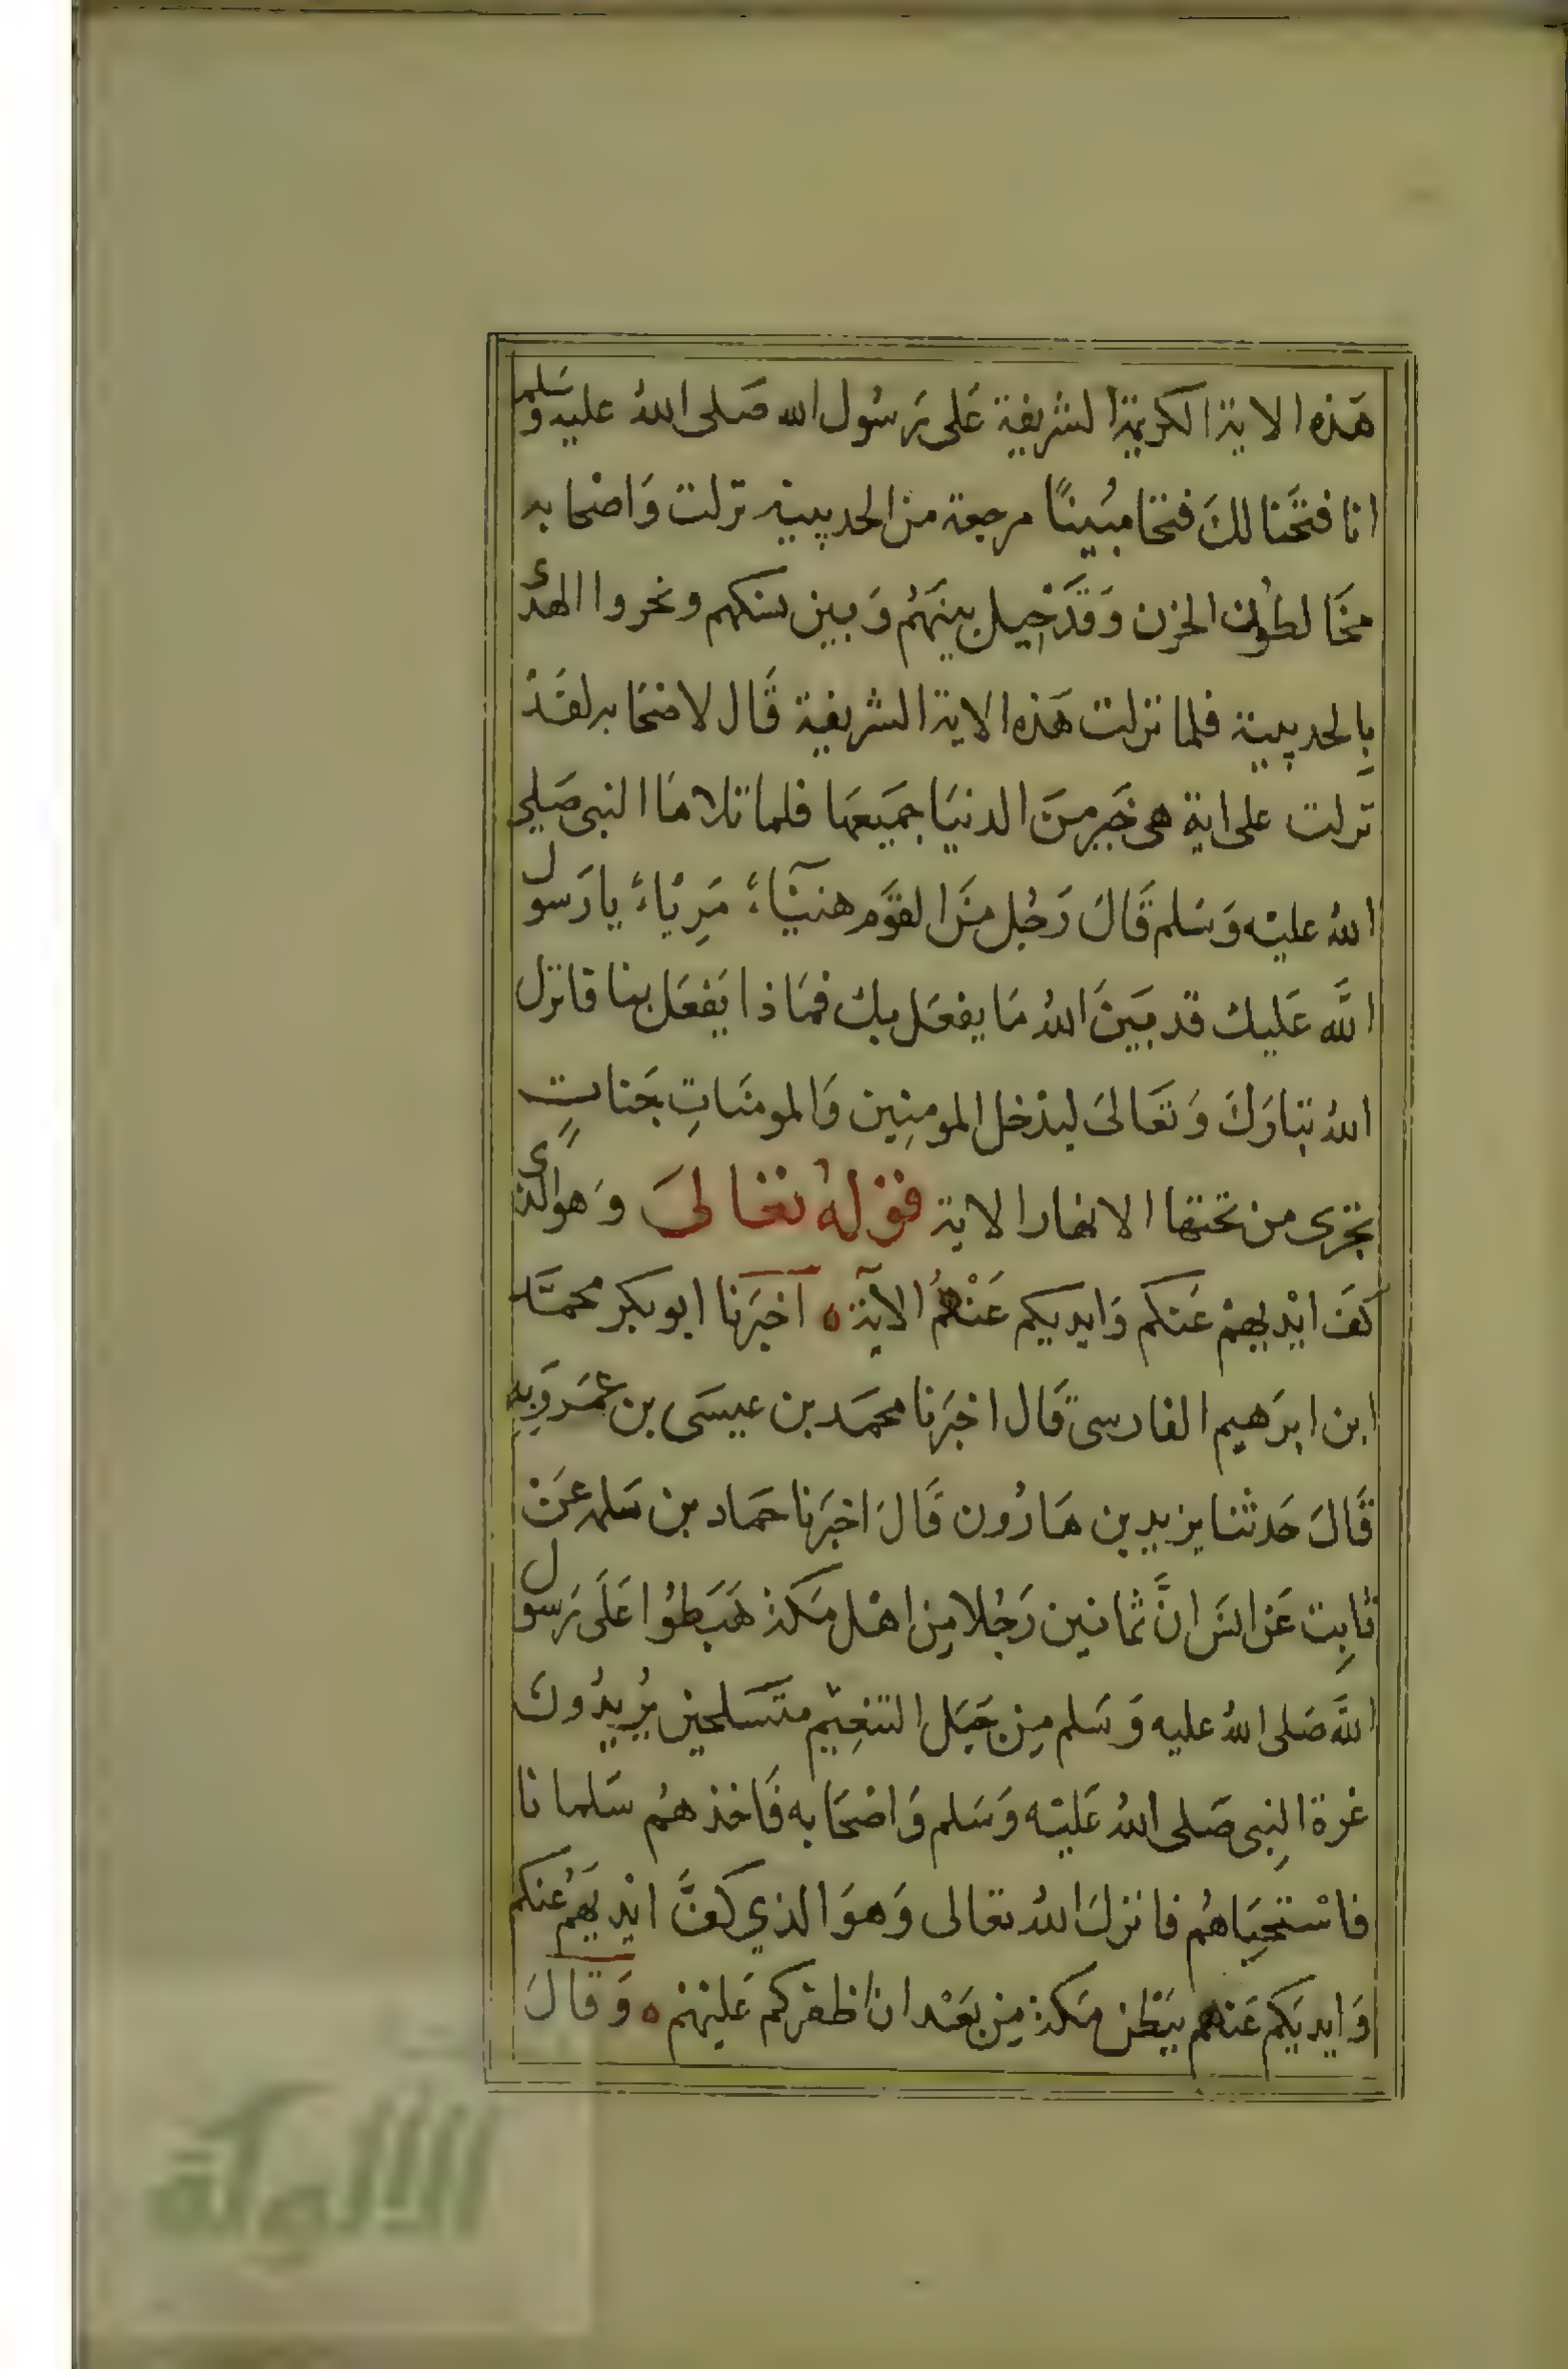 هَذه الاية الكريمة الشريفة عَلى رَسُول الله صَلى اللهُ عليه وَسَلم
انا فتَحَنا لكَ فتحا مبُينًا مرجعة من الحديبية نزلت وَاصْحابه
مخَالطون الحزن وَقدَ حِيل بينَهُم وَبين نسكهم ونحروا الهدْي
بِالحديبية فلما نزلت هَذه الاية الشريفة قَال لاصْحَابه لقَدْ
نزلت على اية هى خَير منَ الدنيَا جَميَعهَا فلما تلاهَا النبى صَلى
اللهُ عليْه وَسَلم قَالَ رَجُل منَ القوَم هنيْئاءً مَرِيْاءً يا رَسول
اللَّه عَليك قد بيَنَ اللهُ مَا يفعَل بك فمَاذا يَفعَل بنا فانزل
اللهُ تبَاركَ وَتعَالىَ ليدْخل المومِنِين وَالمومنَاتِ جَناتٍ
تجْرى من تحتها الانهار الاية قوْلهُ تعَالىَ وَهوَ الَّذي
كفَ ايْديهمْ عَنكم وَايديكم عَنْهُم الايَة ٥ اَخبَرنا ابو بكر محمَّد
ابن ابرَهيم الفارسى قَال اخبَرنا محمَد بن عيسَى بن عَمَروَيِه
قَالَ حَدثنا يزيد بن هَارُون قَالَ اخبَرنا حمَاد بن سَلمه عَنْ
ثابِت عَن انَس انَّ ثمانين رَجُلا مِن اهْل مَكة هَبَطوُا عَلَى رَسول
اللَّه صَلى اللهُ عليه وَسَلم مِن جَبَل التنعِيْم متسَلحين يُريدُونَ
غرة النِبى صَلى اللهُ عَليْه وَسَلم وَاصْحَابه فَاخذهُم سَلما نا
فاسْتحيَاهُم فانزلَ اللهُ تعَالى وَهوَ الذي كفَّ ايْديَهُم عَنكم
وَايديَكم عَنهُم ببَطْن مَكة مِن بعَد ان اظفركم عَليْهمْ ٥ وَقَالَ
الألوكة